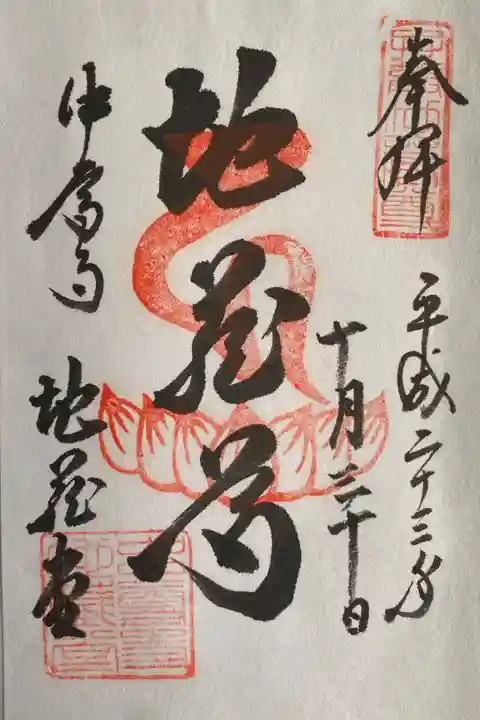 奉拝
平成二十三年
十月三十日
地蔵尊
中尊寺 地蔵堂